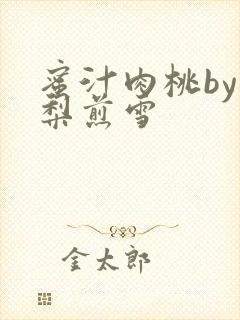 蜜汁肉桃by
梨煎雪
金太郎